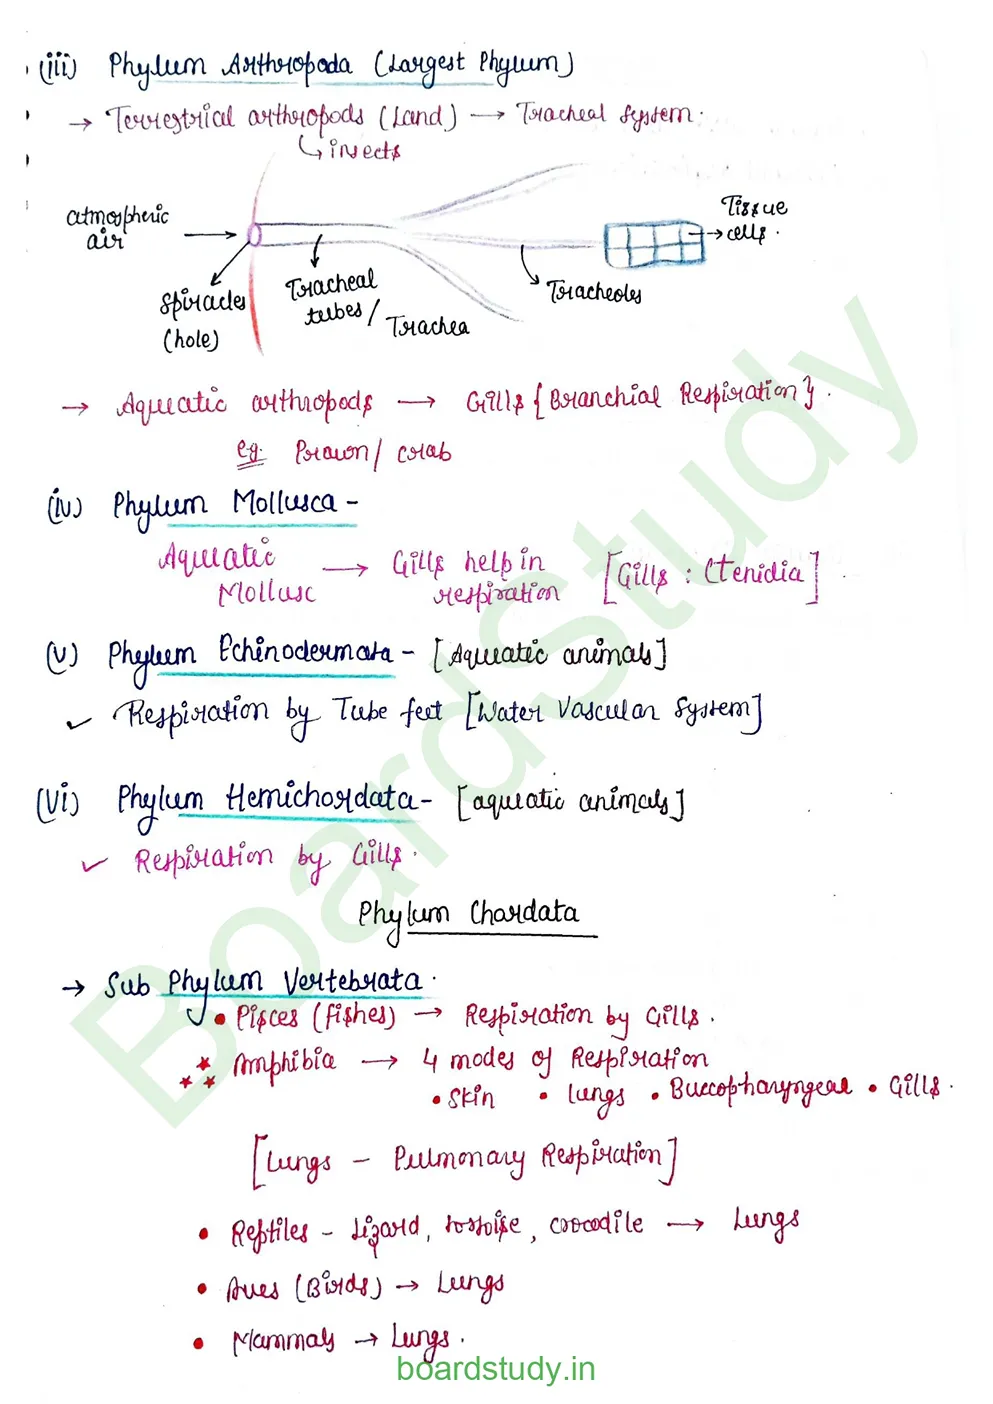 (iii) Phylum Arthropoda (Largest Phylum)
→ Terrestrial arthropods (Land) → Tracheal System.
↳ insects
atmospheric
air
Spiracles
(hole)
Tracheal
tubes /
Trachea
Tracheoles
Tissue
cells.
→ Aquatic arthropods → Gills {Branchial Respiration}.
eg. Prawn / crab
(iv) Phylum Mollusca -
Aquatic
Mollusc
→ Gills help in
respiration
[Gills : Ctenidia]
(v) Phylum Echinodermata - [Aquatic animals]
✓ Respiration by Tube feet [Water Vascular System]
(vi) Phylum Hemichordata - [aquatic animals]
✓ Respiration by Gills.
Phylum Chordata
→ Sub Phylum Vertebrata.
• Pisces (fishes) → Respiration by Gills.
Amphibia → 4 modes of Respiration
• Skin • lungs • Buccopharyngeal • Gills.
[Lungs - Pulmonary Respiration]
• Reptiles - Lizard, tortoise, crocodile → Lungs
• Aves (Birds) → Lungs
• Mammals → Lungs.
boardstudy.in
BoardStudy